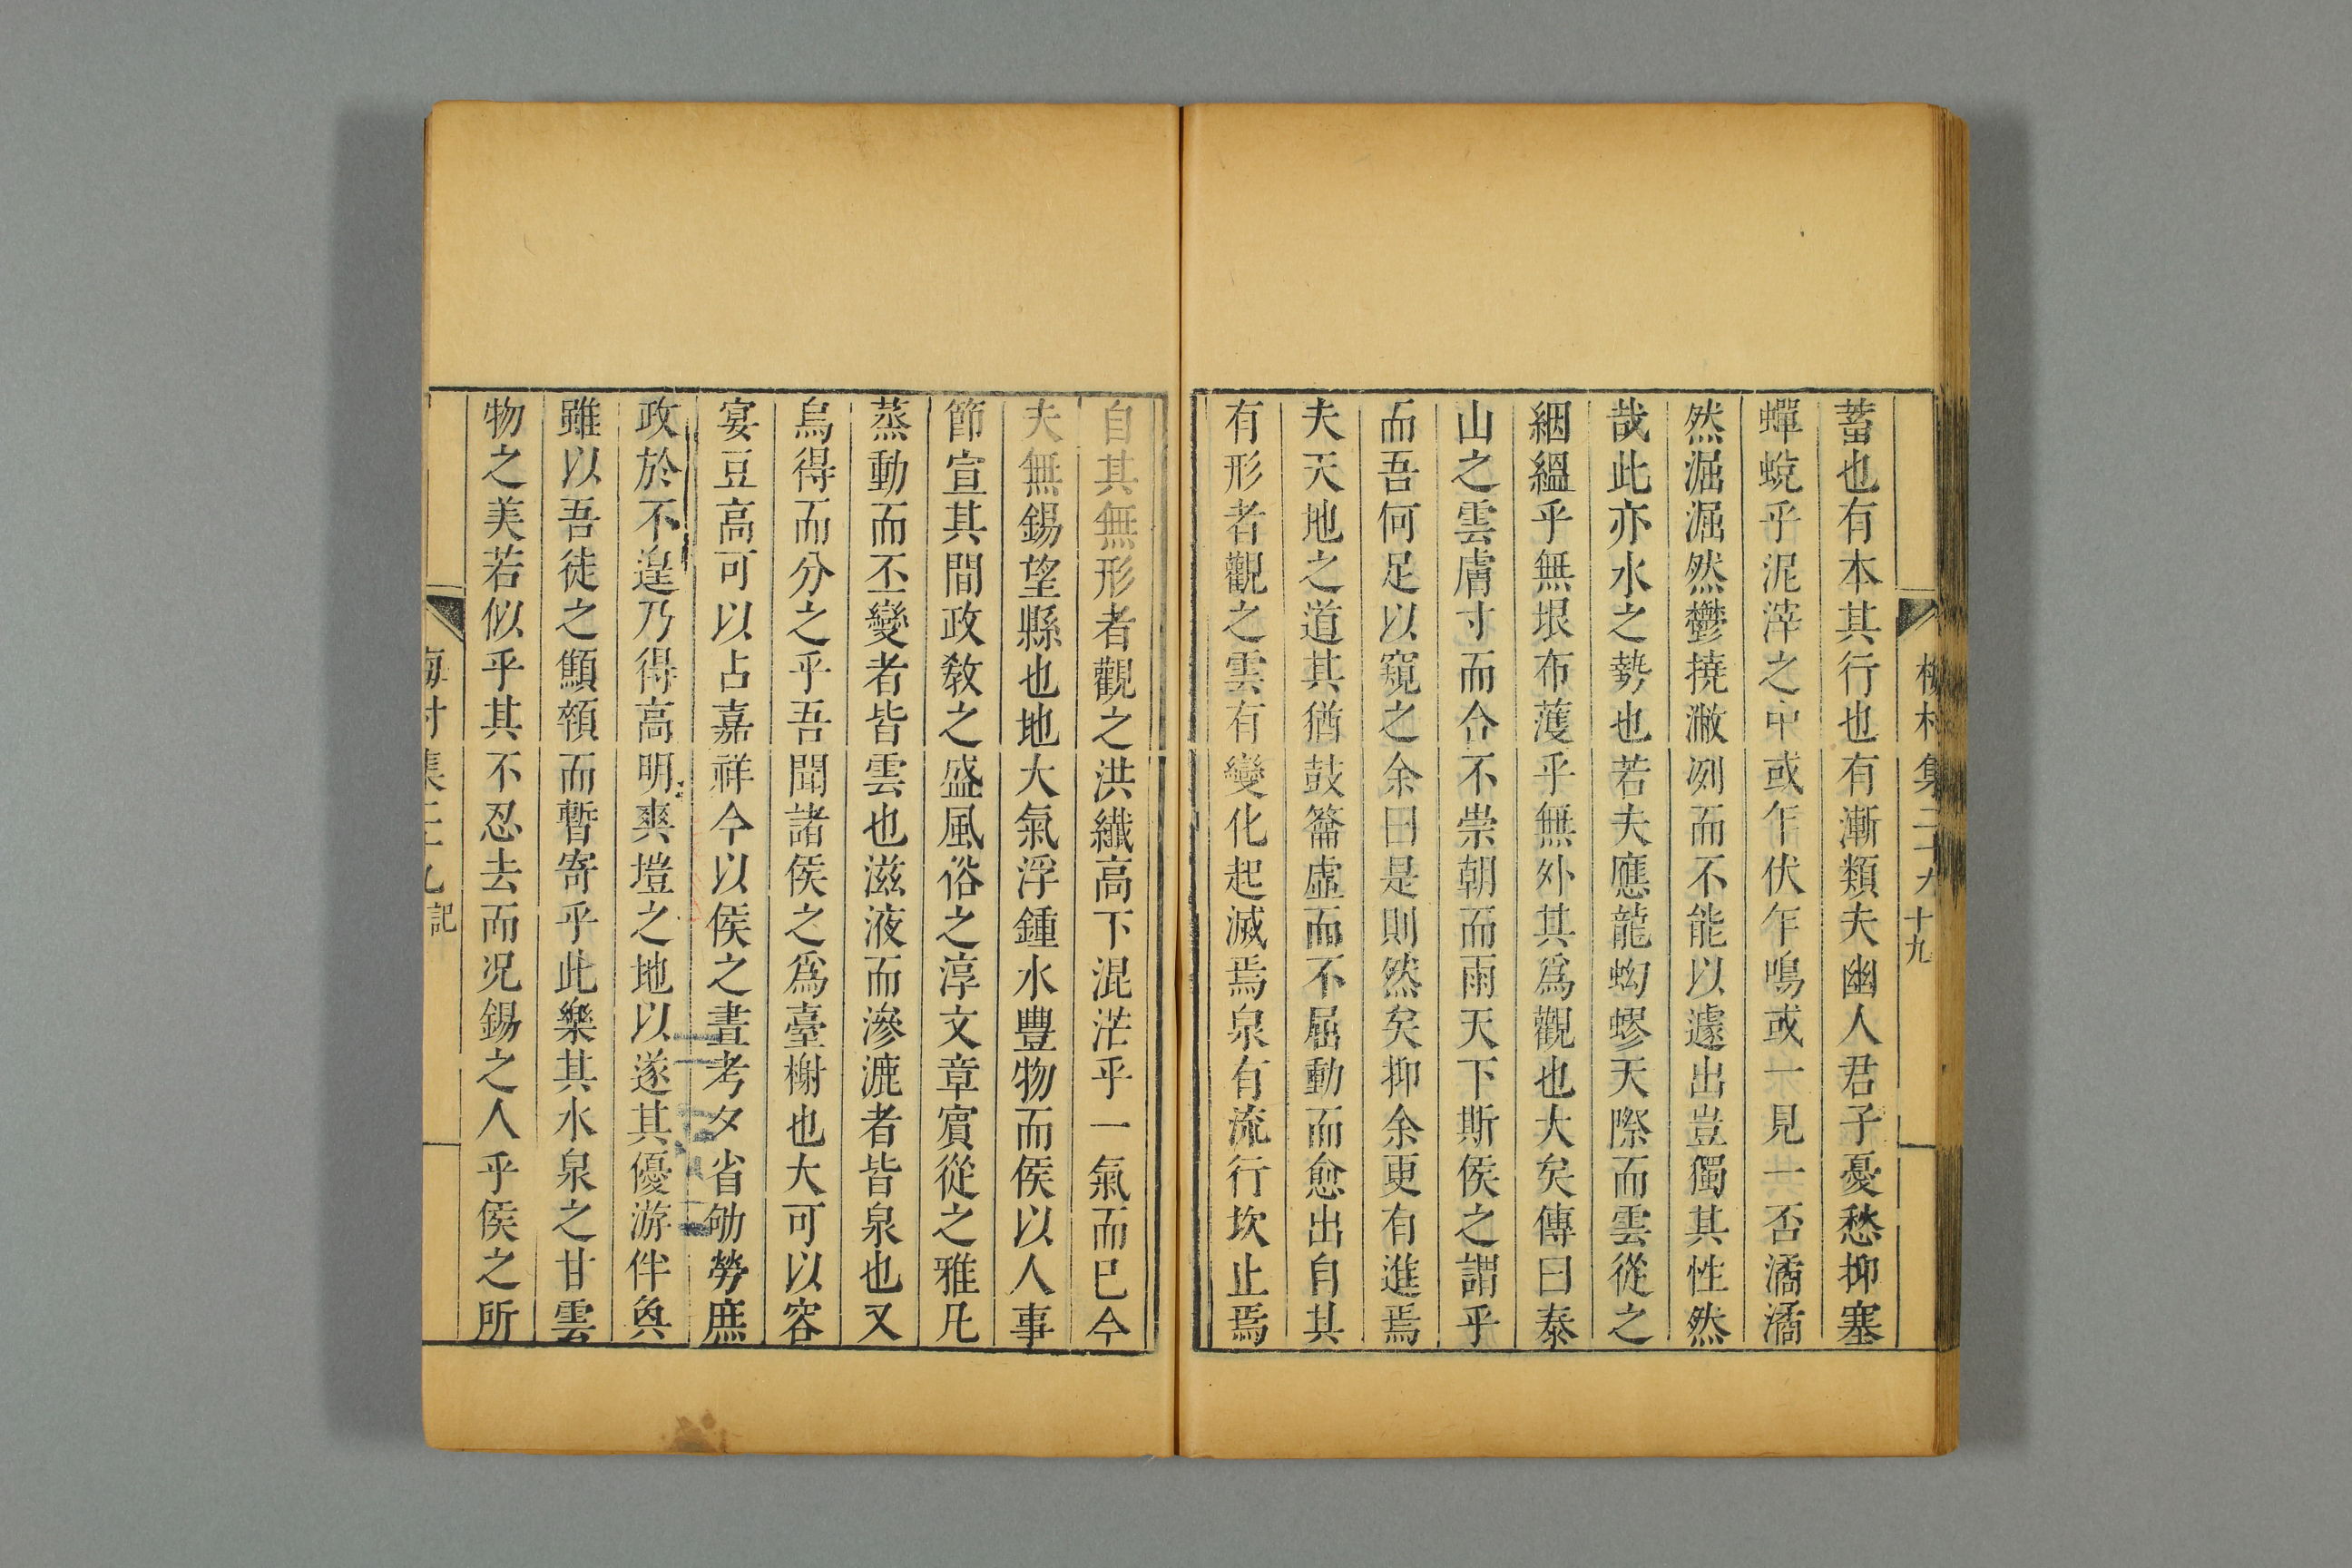 蓄也有本其行也有漸類夫幽人君子憂愁抑塞
蟬蛻乎泥滓之中或乍伏乍鳴或一見一否潏潏
然淈淈然鬱撓潎冽而不能以遽出豈獨其性然
哉此亦水之勢也若夫應龍蚴蟉天際而雲從之
絪緼乎無垠布濩乎無外其爲觀也大矣傳曰泰
山之雲膚寸而合不崇朝而雨天下斯侯之謂乎
而吾何足以窺之余曰是則然矣抑余更有進焉
夫天地之道其猶鼓籥虛而不屈動而愈出自其
有形者觀之雲有變化起滅焉泉有流行坎止焉
自其無形者觀之洪纖高下混茫乎一氣而已今
夫無錫望縣也地大氣浮鍾水豐物而侯以人事
節宣其間政敎之盛風俗之淳文章賓從之雅凡
蒸動而丕變者皆雲也滋液而滲漉者皆泉也又
烏得而分之乎吾聞諸侯之爲臺榭也大可以容
宴豆高可以占嘉祥今以侯之晝考夕省劬勞庶
政於不遑乃得高明爽塏之地以遂其優游伴奐
雖以吾徒之顦顇而暫寄乎此樂其水泉之甘雲
物之美若似乎其不忍去而况錫之人乎侯之所
梅村集二十九 記 十九